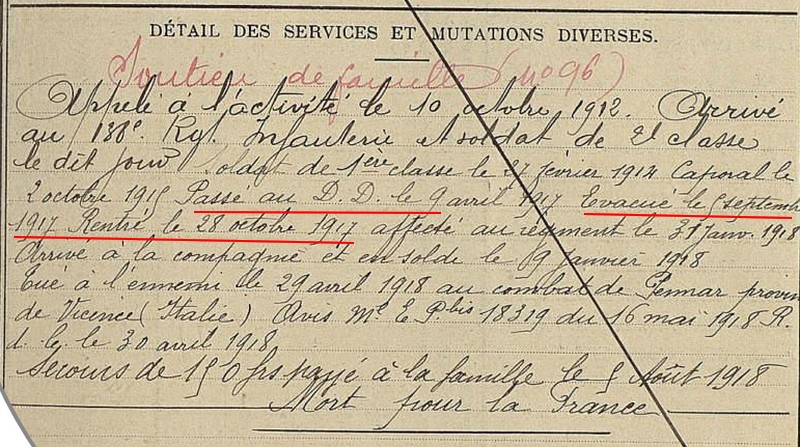 DÉTAIL DES SERVICES ET MUTATIONS DIVERSES.
Soutien de famille (no 96)
Appelé à l'activité le 10 octobre 1912. Arrivé
au 138e. Rgt. Infanterie et soldat de 2e classe
le dit jour Soldat de 1ère classe le 27 février 1914 Caporal le
2 octobre 1915 Passé au D.D. le 9 avril 1917 Evacué le 5 septembre
1917 Rentré le 28 octobre 1917 affecté au régiment le 31 Janv. 1918
Arrivé à la compagnie et en solde le 19 janvier 1918
Tué à l'ennemi le 29 avril 1918 au combat de Pennar provin
de Vicence (Italie) Avis Mel E. P. bis 18319 du 16 mai 1918 R.
d. l. le 30 avril 1918
Secours de 150 frs payé à la famille le 5 Août 1918
Mort pour la France